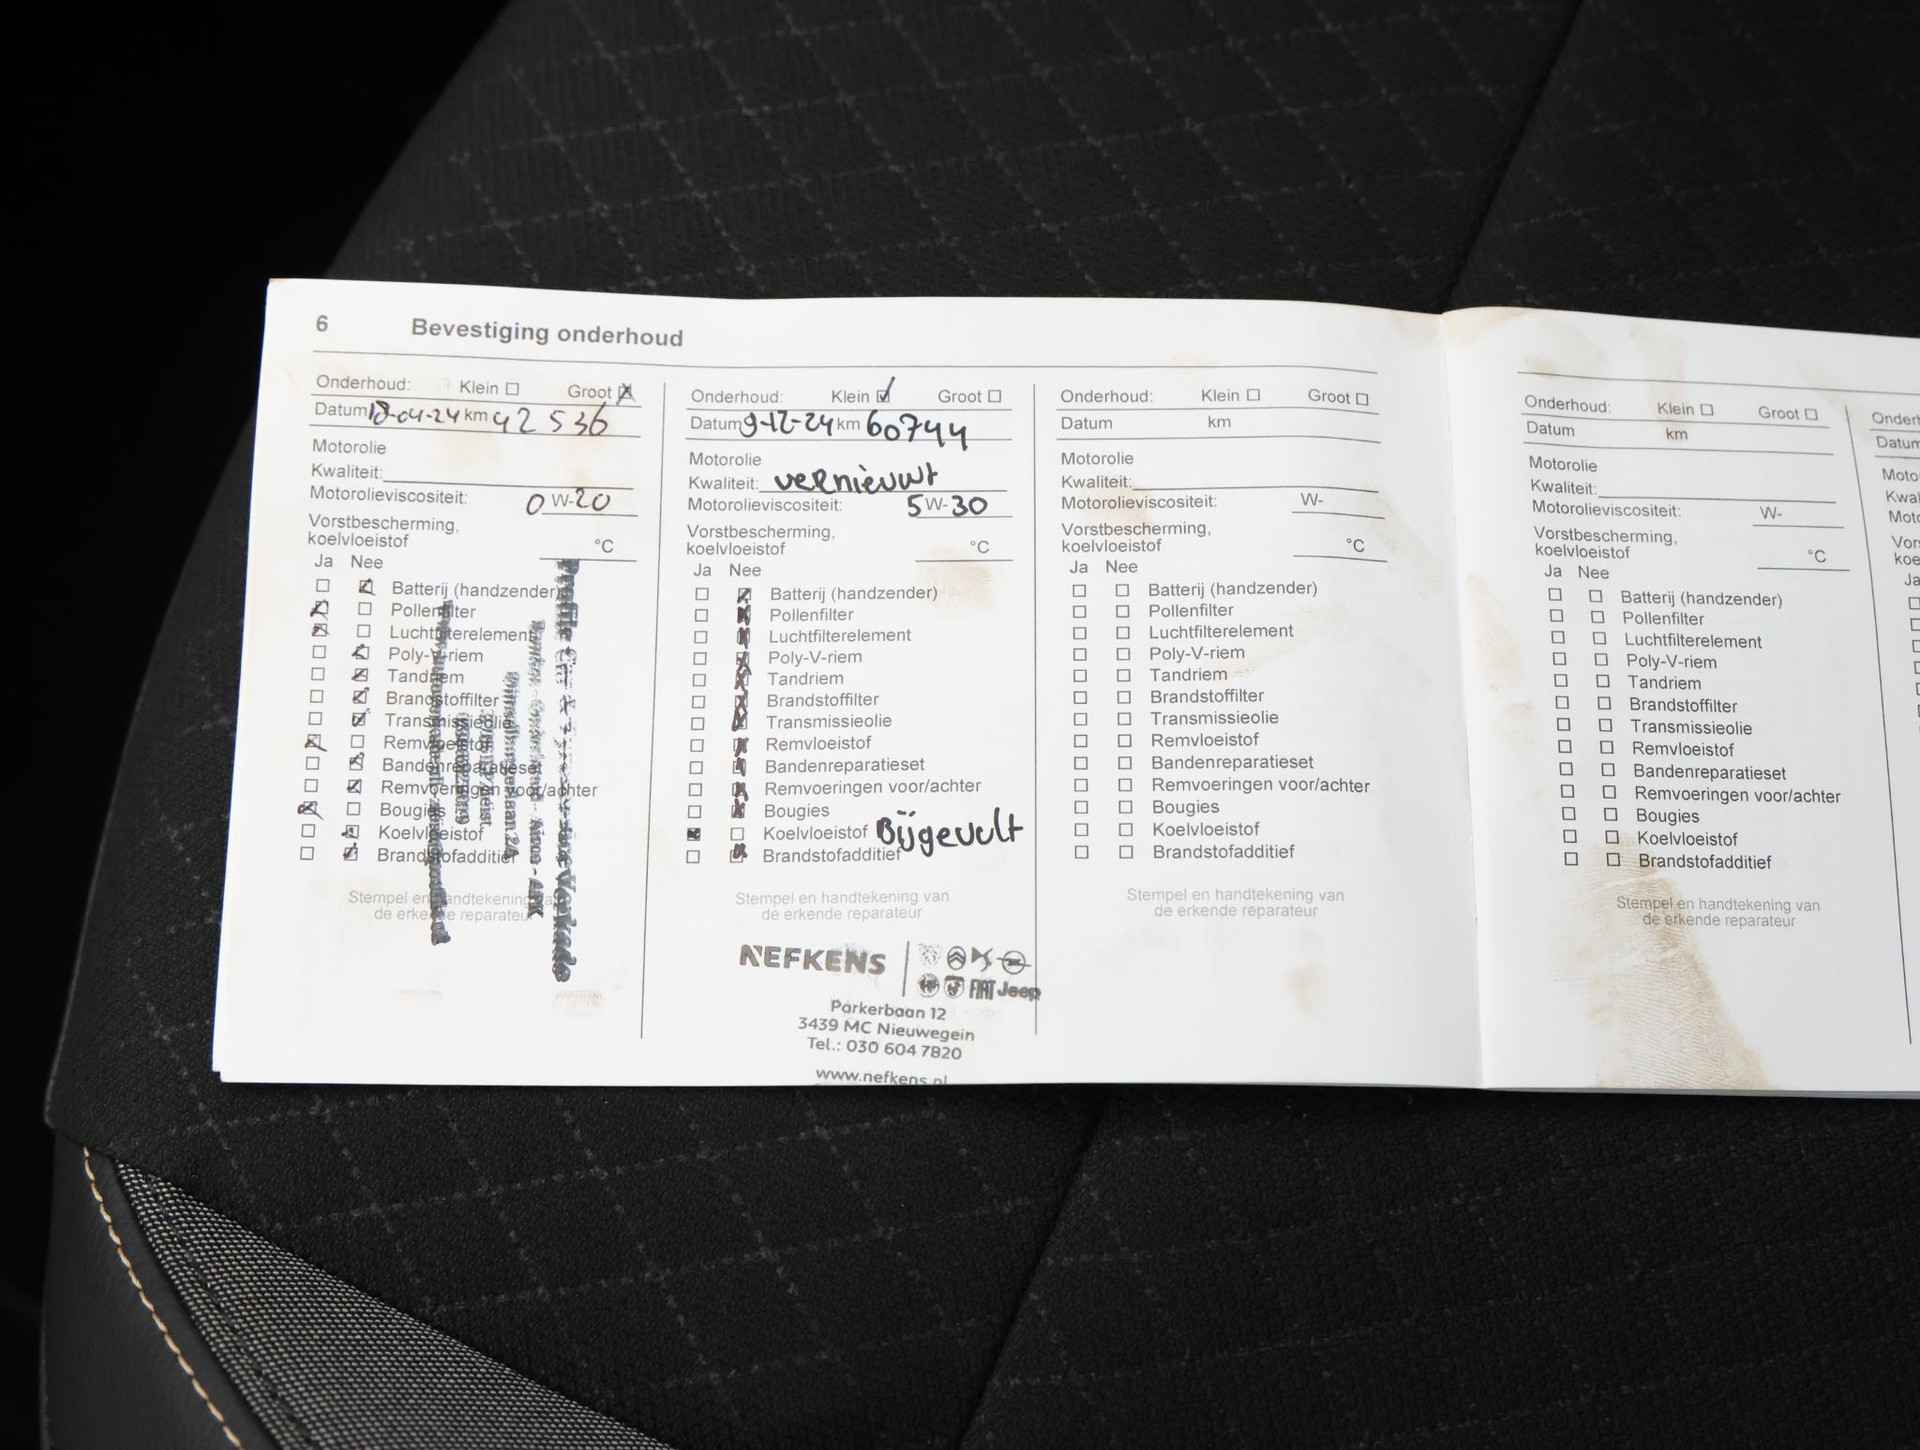 6 Bevestiging onderhoud
Onderhoud: Klein Groot
Datum 18-04-24 km 42 536
Motorolie
Kwaliteit:
Motorolieviscositeit: 0 W-20
Vorstbescherming,
koelvloeistof °C
Ja Nee
Batterij (handzender)
Pollenfilter
Luchtfilterelement
Poly-V-riem
Tandriem
Brandstoffilter
Transmissieolie
Remvloeistof
Bandenreparatieset
Remvoeringen voor/achter
Bougies
Koelvloeistof
Brandstofadditief
Stempel en handtekening van
de erkende reparateur
Onderhoud: Klein Groot
Datum 9-12-24 km 60744
Motorolie
Kwaliteit: vernieuwt
Motorolieviscositeit: 5 W-30
Vorstbescherming,
koelvloeistof °C
Ja Nee
Batterij (handzender)
Pollenfilter
Luchtfilterelement
Poly-V-riem
Tandriem
Brandstoffilter
Transmissieolie
Remvloeistof
Bandenreparatieset
Remvoeringen voor/achter
Bougies
Koelvloeistof Bijgevult
Brandstofadditief
Stempel en handtekening van
de erkende reparateur
NEFKENS
FIAT Jeep
Parkerbaan 12
3439 MC Nieuwegein
Tel.: 030 604 7820
www.nefkens.nl
Onderhoud: Klein Groot
Datum km
Motorolie
Kwaliteit:
Motorolieviscositeit: W-
Vorstbescherming,
koelvloeistof °C
Ja Nee
Batterij (handzender)
Pollenfilter
Luchtfilterelement
Poly-V-riem
Tandriem
Brandstoffilter
Transmissieolie
Remvloeistof
Bandenreparatieset
Remvoeringen voor/achter
Bougies
Koelvloeistof
Brandstofadditief
Stempel en handtekening van
de erkende reparateur
Onderhoud: Klein Groot
Datum km
Motorolie
Kwaliteit:
Motorolieviscositeit: W-
Vorstbescherming,
koelvloeistof °C
Ja Nee
Batterij (handzender)
Pollenfilter
Luchtfilterelement
Poly-V-riem
Tandriem
Brandstoffilter
Transmissieolie
Remvloeistof
Bandenreparatieset
Remvoeringen voor/achter
Bougies
Koelvloeistof
Brandstofadditief
Stempel en handtekening van
de erkende reparateur